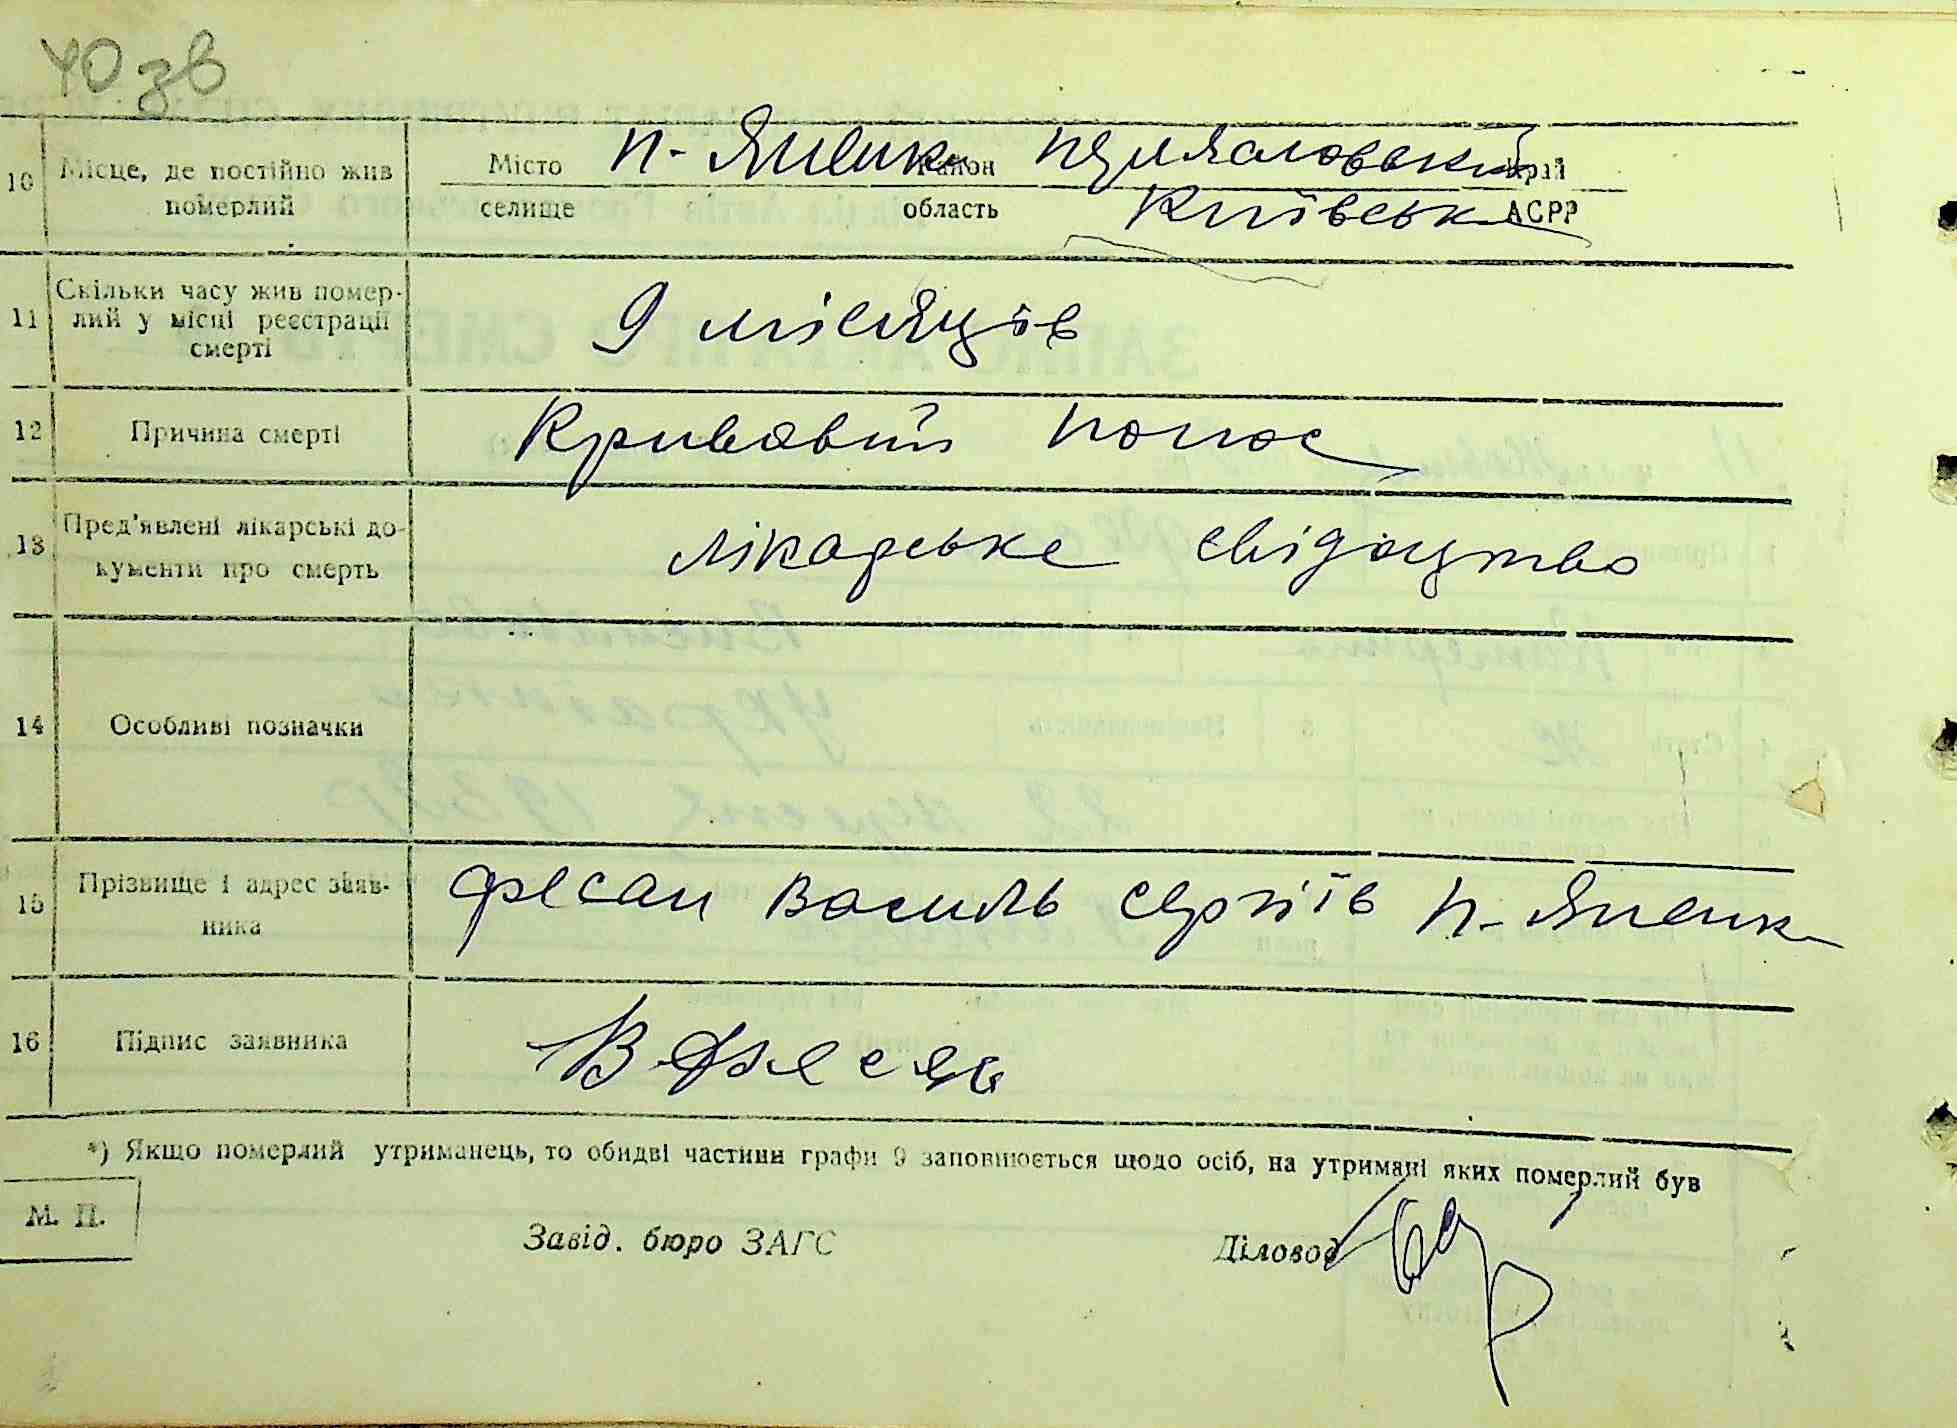 40 зв
10 Місце, де постійно жив померлий
Місто П-Яненки Район Переяславський край
селище область Київська АСРР
11 Скільки часу жив помер-
лий у місці реєстрації
смерті
9 місяців
12 Причина смерті Кривавий понос
13 Пред'явлені лікарські до-
кументи про смерть
лікарське свідоцтво
14 Особливі позначки
15 Прізвище і адрес заяв-
ника
Фесан Василь Сергіїв П-Яненки
16 Підпис заявника В Фесан
*) Якщо померлий утриманець, то обидві частини графи 9 заповнюється щодо осіб, на утримані яких померлий був
М. П.
Завід. бюро ЗАГС Діловод